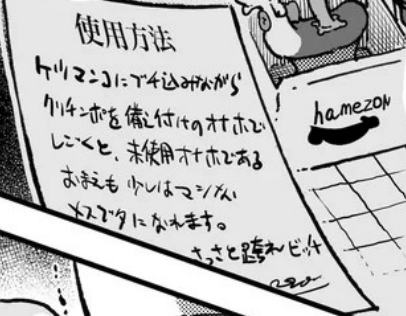 使用方法
ケツマンコにブチ込みながら
クリチンポを備え付けのオナホで
しごくと、未使用オナホである
おまえも少しはマシな
メスブタになれます。
さっさと跨れビッチ
hamezon